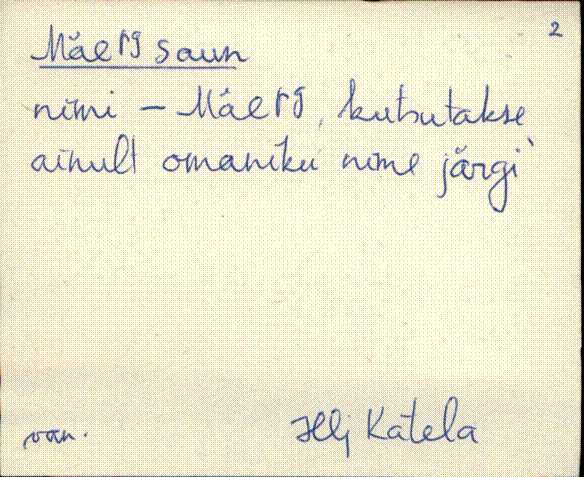 2
Mäerg saun
nimi – Mäerg, kutsutakse
ainult omaniku nime järgi
van. Hlj Kätela